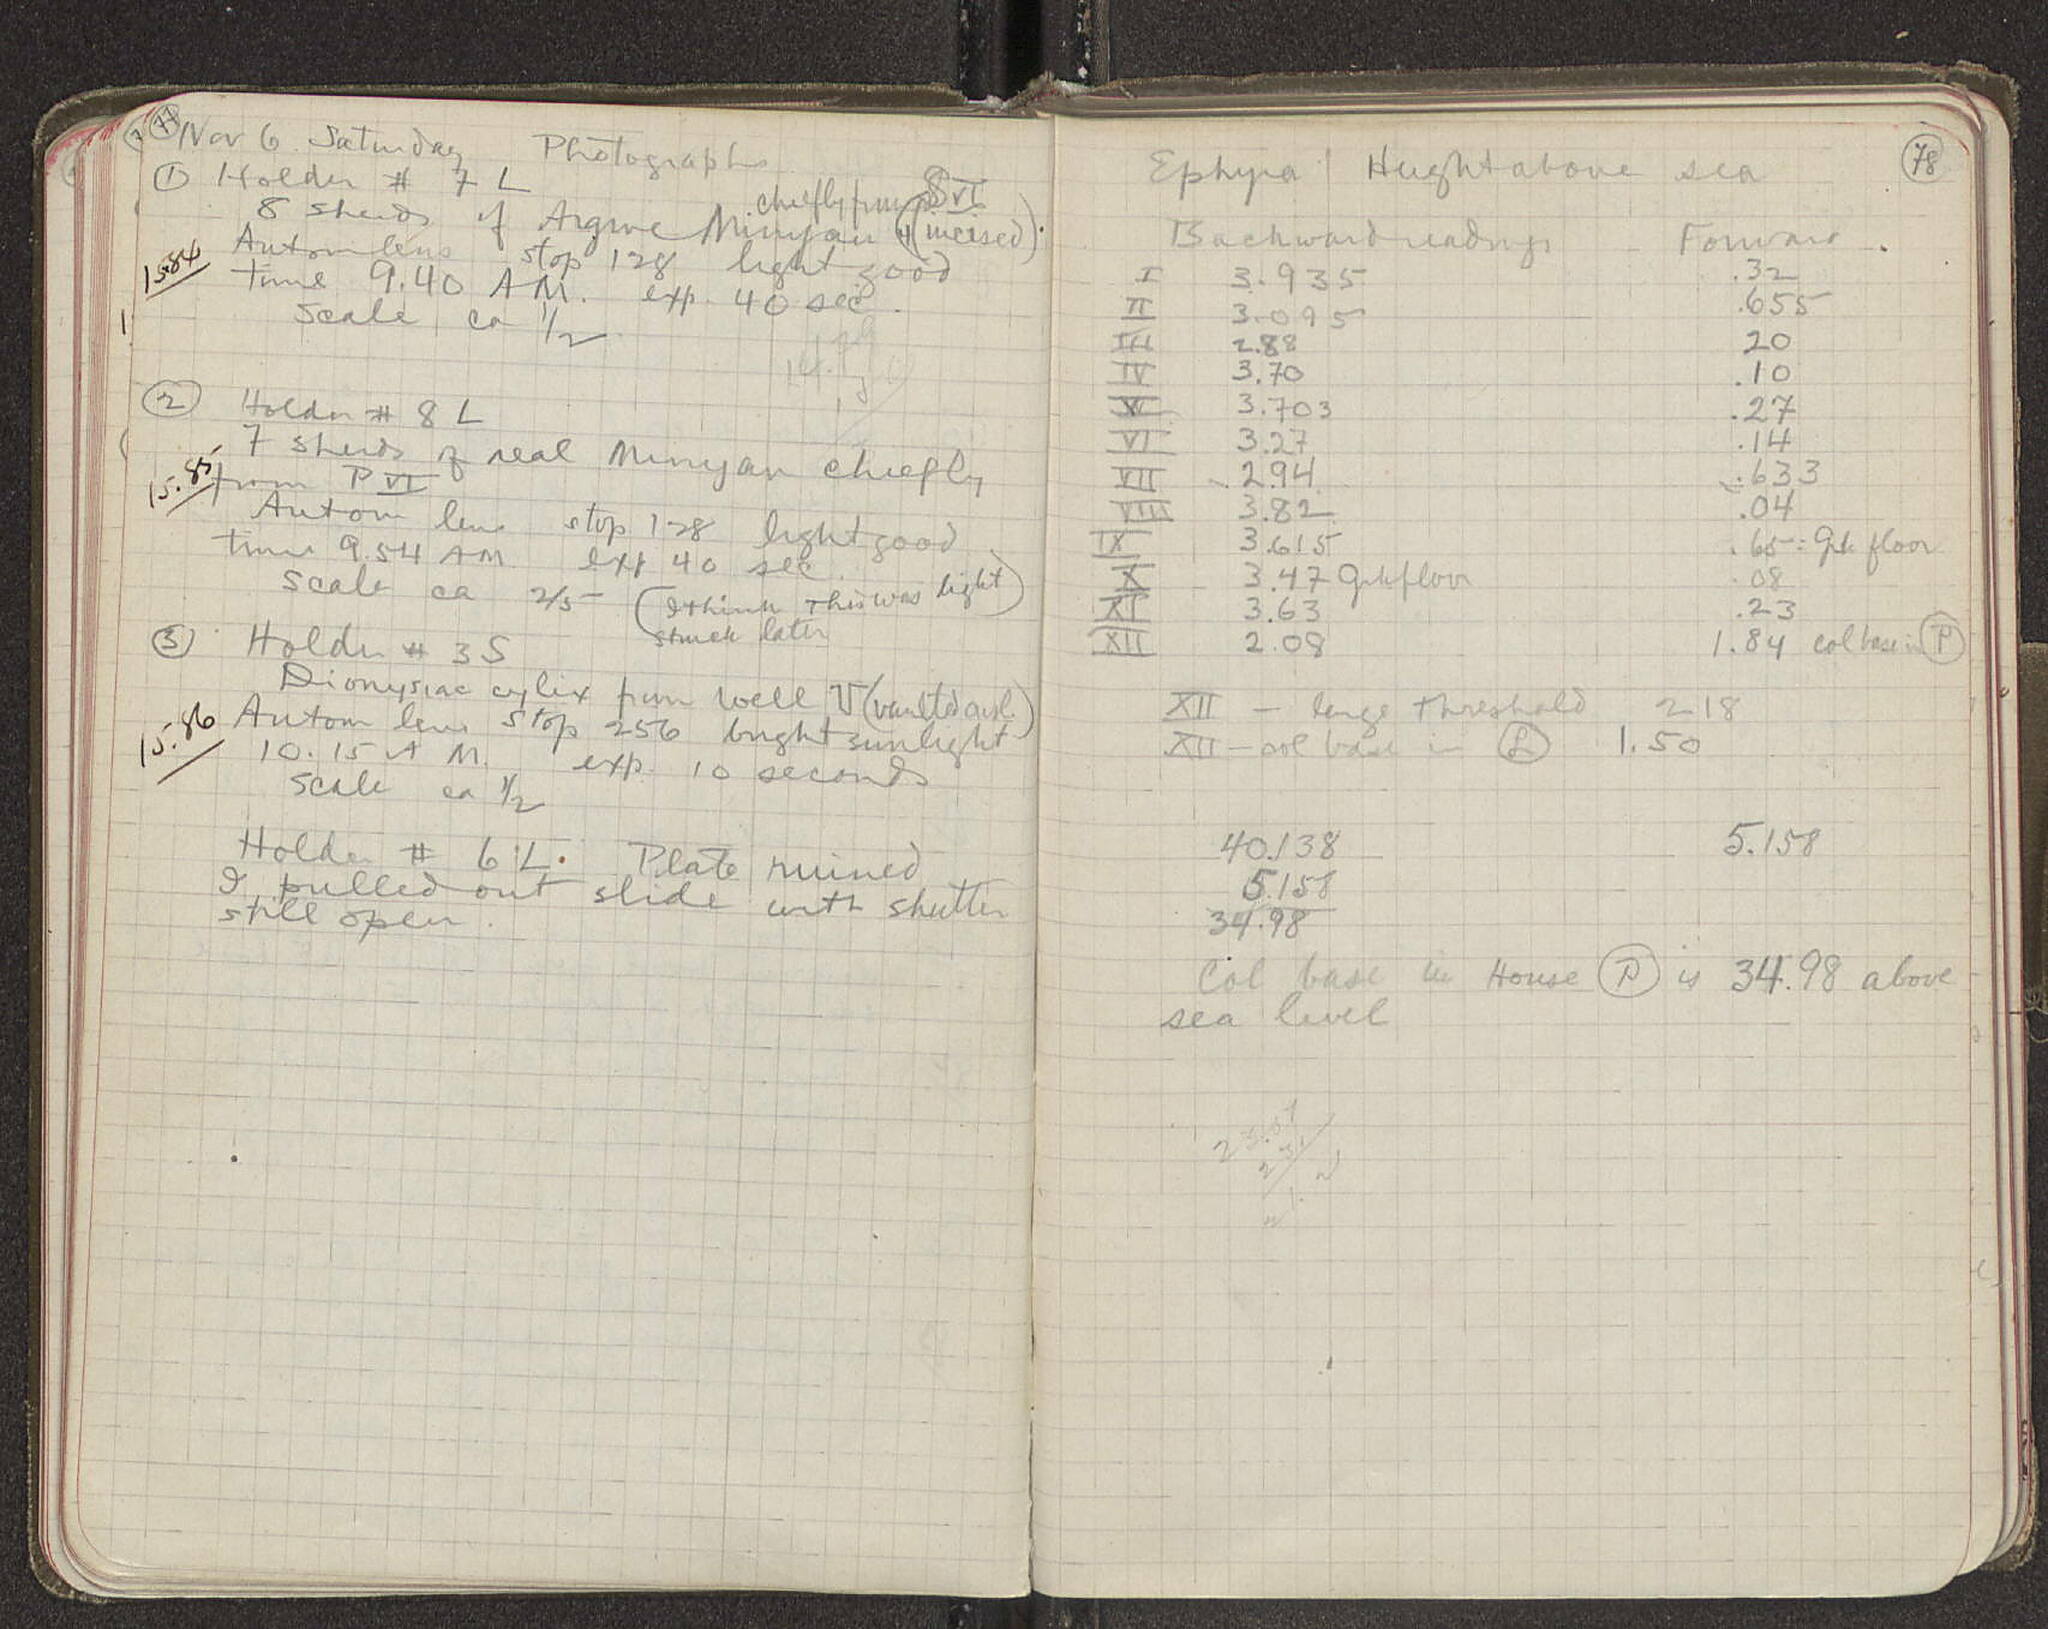 77
Nov 6 Saturday Photographs
① Holder # 7 L
chiefly from P VI
8 sherds of Argive Minyan (incised).
Autom lens stop 128 light good
15.84
time 9.40 AM. exp. 40 sec.
Scale ca 1/2
② Holder # 8 L
7 sherds of real Minyan chiefly
15.85
from P VI
Autom lens stop 128 light good
time 9.54 AM exp 40 sec.
Scale ca 2/5 (I think this was light
struck later)
③ Holder # 3 S
Dionysiac cylix from well V (vaulted
15.86
Autom lens stop 256 bright sunlight
10.15 A M. exp. 10 seconds
Scale ca 1/2
Holder # 6 L. Plate ruined
I pulled out slide with shutter
still open.
78
Ephyra Height above sea
Backward readings Forward.
I 3.935 .32
II 3.095 .655
III 2.88 20
IV 3.70 .10
V 3.703 .27
VI 3.27 .14
VII 2.94 .633
VIII 3.82 .04
IX 3.615 .65 = Grk floor
X 3.47 Grk floor .08
XI 3.63 .23
XII 2.08 1.84 col base in P
XII - large threshold 2.18
XII - col base in L 1.50
40.138 5.158
5.158
34.98
Col base in House P is 34.98 above
sea level